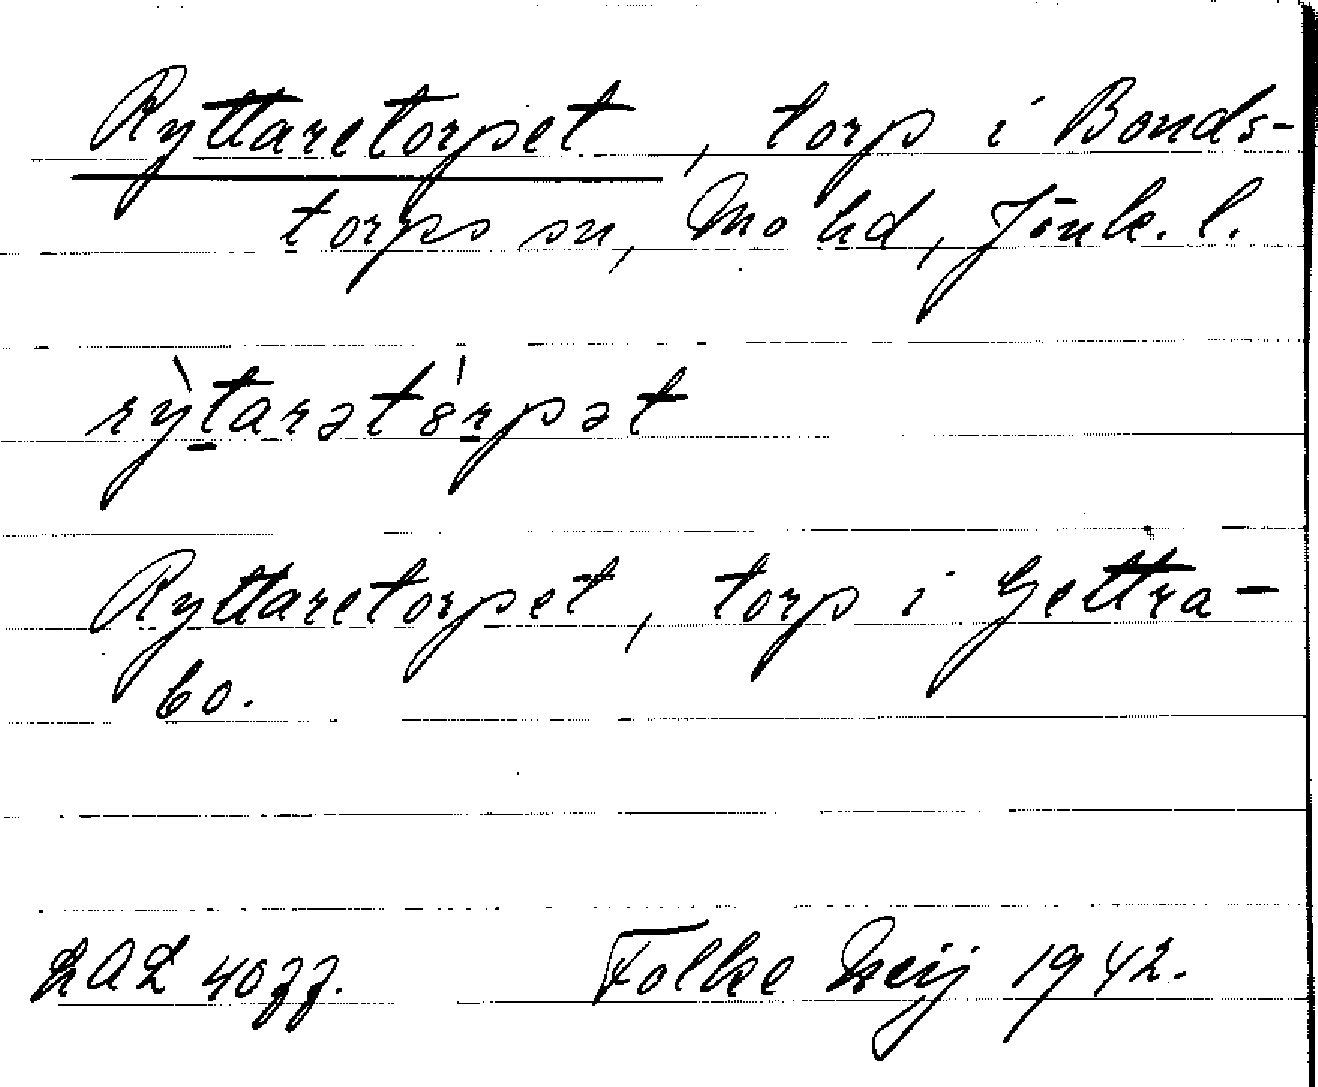 Ryttaretorpet, torp i Bonds-
torps sn, Mo hd, Jönk. l.
rỳtarətó̱rpət
Ryttaretorpet, torp i Gettra-
bo.
LAL 4077. Folke Weij 1942.